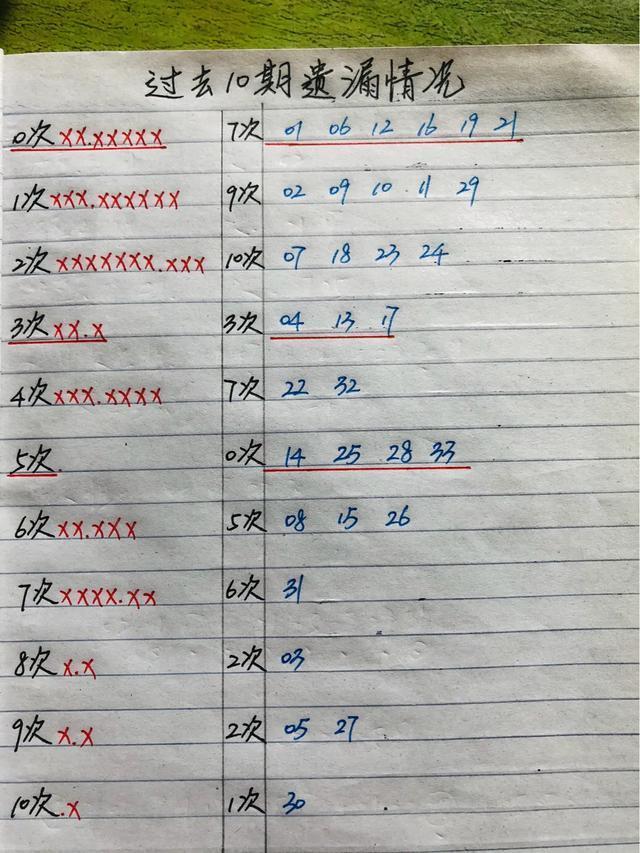 过去10期遗漏情况
0次 xx.xxxxx 7次 01 06 12 16 19 21
1次 xxx.xxxxxx 9次 02 09 10 11 29
2次 xxxxxxx.xxx 10次 07 18 23 24
3次 xx.x 3次 04 13 17
4次 xxx.xxxx 7次 22 32
5次. 0次 14 25 28 33
6次 xx.xxx 5次 08 15 26
7次 xxxx.xx 6次 31
8次 x.x 2次 03
9次 x.x 2次 05 27
10次 .x 1次 30